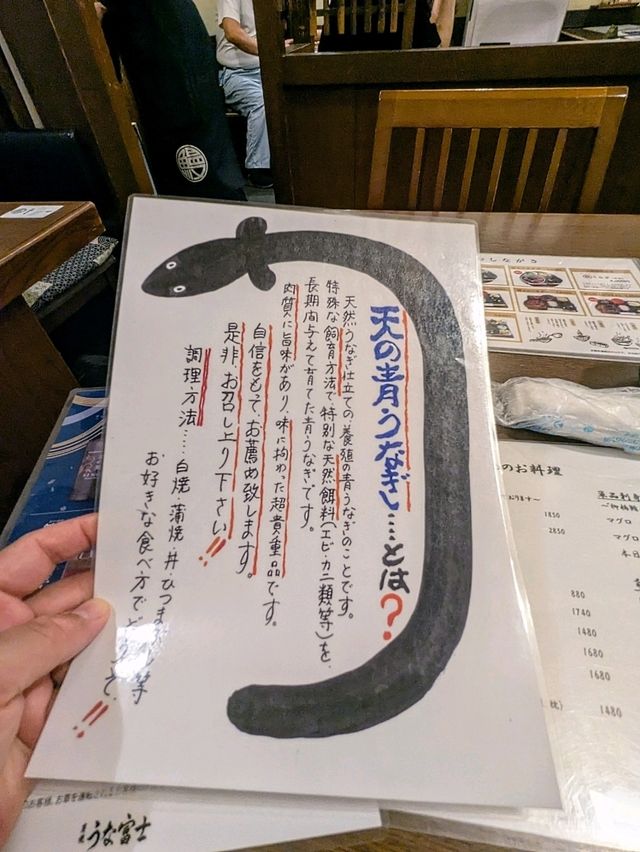 天の青うなぎ…とは?
天然うなぎ仕立ての養殖の青うなぎのことです。
特殊な飼育方法で、特別な天然餌料(エビ・カニ類等)を、
長期間与えて育てた青うなぎです。
肉質に旨味があり、味に拘わった超貴重品です。
自信をもって、お薦め致します。
是非、お召し上り下さい!!
調理方法……白焼・蒲焼・丼・ひつまぶし等
お好きな食べ方でどうぞ、!!
しながき
のお料理
1850
2850
880
1740
1480
1680
1680
1480
マグロ
マグロ
本日
うな富士